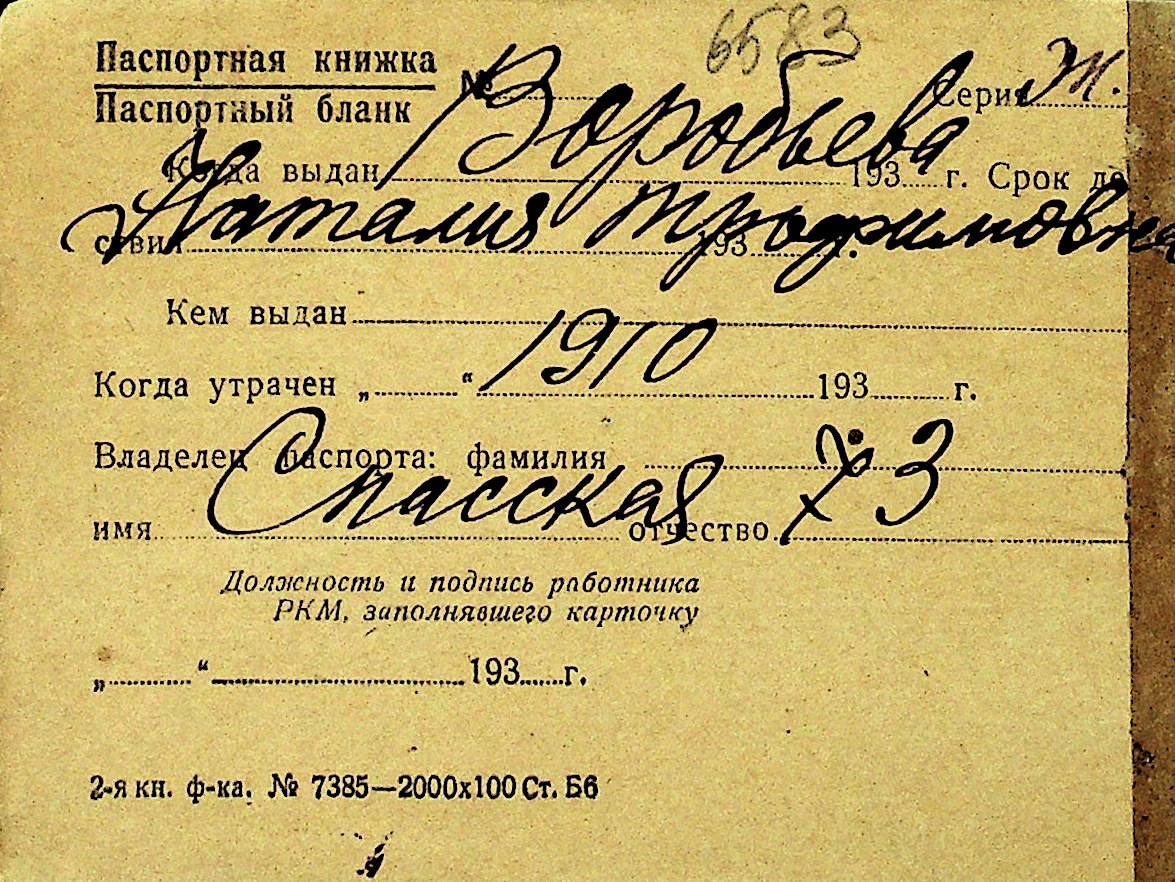 6583
Паспортная книжка
Паспортный бланк
№ Воробьева Серия Ж.
Когда выдан 193 г. Срок де
ствия 193 г.
Наталия Трофимовна
Кем выдан
1910
Когда утрачен „ “ 193 г.
Владелец паспорта: фамилия
Спасская 73
имя отчество
Должность и подпись работника
РКМ, заполнявшего карточку
„ “ 193 г.
2-я кн. ф-ка. № 7385—2000х100 Ст. Б6